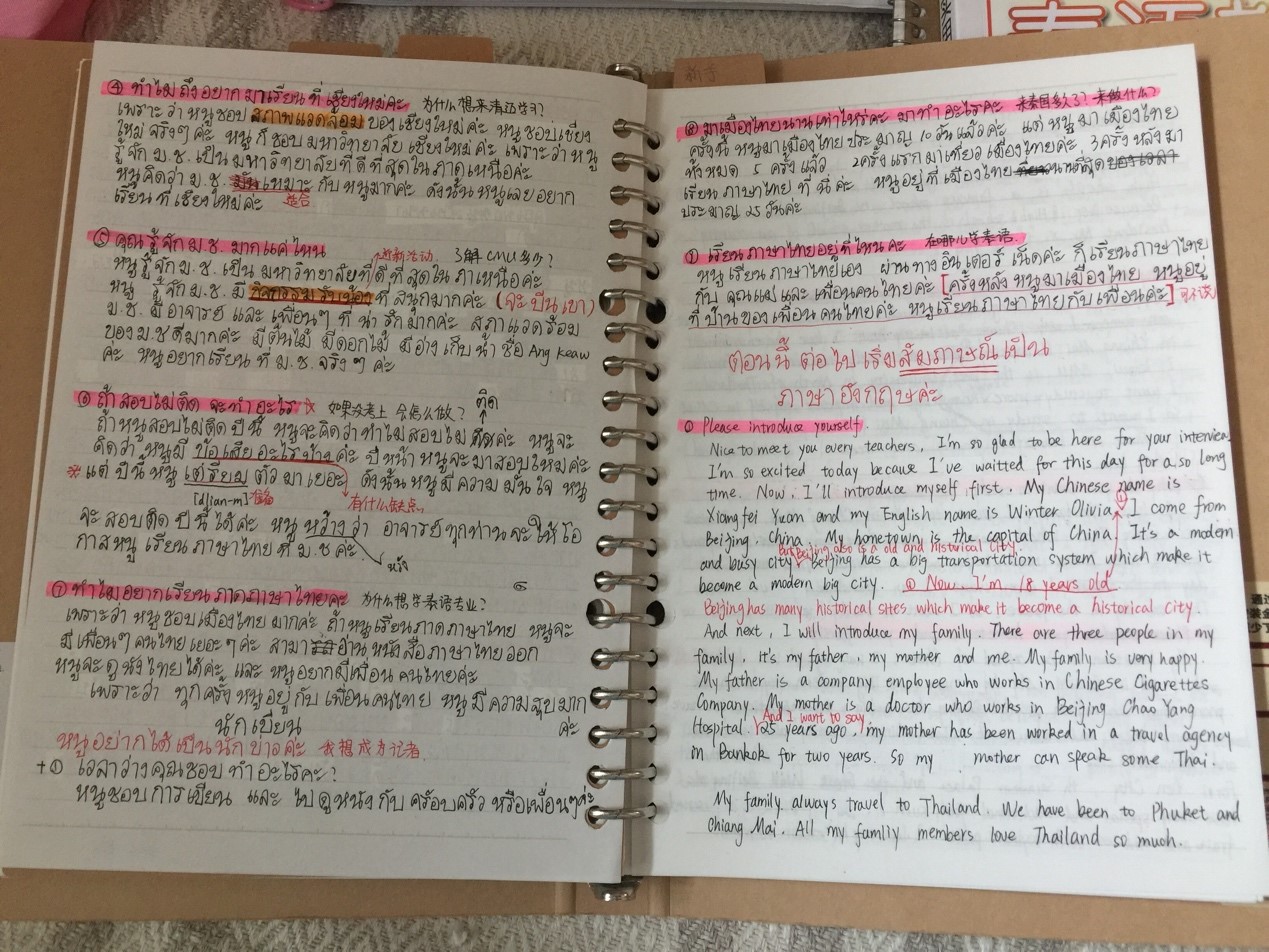 ④ ทำไมถึงอยากมาเรียนที่เชียงใหม่คะ 为什么想来清迈学习?
เพราะว่าหนูชอบสภาพแวดล้อมของเชียงใหม่ค่ะ หนูชอบเชียง
ใหม่จริงๆค่ะ หนูก็ชอบมหาวิทยาลัยเชียงใหม่ค่ะ เพราะว่าหนู
รู้จัก ม.ช. เป็นมหาวิทยาลัยที่ดีที่สุดในภาคเหนือค่ะ
หนูคิดว่า ม.ช. เหมาะ กับหนูมากค่ะ ดังนั้นหนูเลยอยาก
เรียนที่เชียงใหม่ค่ะ 适合
⑤ คุณรู้จัก ม.ช. มากแค่ไหน 了解CMU多少?
迎新活动
หนูรู้จัก ม.ช. เป็นมหาวิทยาลัยที่ดีที่สุดในภาเหนือค่ะ
หนูรู้จัก ม.ช. มีกิจกรรมรับน้องที่สนุกมากค่ะ (จะปีนเขา)
ม.ช. มีอาจารย์ และเพื่อนๆ ที่น่ารักมากค่ะ สภาแวดร้อม
ของ ม.ช ดีมากค่ะ มีต้นไม้ มีดอกไม้ มีอ่างเก็บน้ำ ชื่อ Ang Keaw
ค่ะ หนูอยากเรียนที่ ม.ช. จริงๆค่ะ
⑥ ถ้าสอบไม่ติด จะทำอะไร 如果没考上 会怎么做?
ติด
ถ้าหนูสอบไม่ติดปีนี้ หนูจะคิดว่าทำไมสอบไม่ ค่ะ หนูจะ
คิดว่าหนูมี ข้อเสียอะไรบ้างค่ะ ปีหน้าหนูจะมาสอบใหม่ค่ะ
* แต่ปีนี้หนู เตรียม ตัวมาเยอะ ดังนั้นหนูมีความมั่นใจ หนู
[dtlian-m] 准备 有什么缺点
จะสอบติดปีนี้ได้ค่ะ หนูหว้างว่า อาจารย์ทุกท่านจะให้โอ
กาสหนูเรียนภาษาไทยที่ ม.ช ค่ะ
หวัง
⑦ ทำไมอยากเรียนภาคภาษาไทยคะ 为什么想学泰语专业?
เพราะว่าหนูชอบเมืองไทยมากค่ะ ถ้าหนูเรียนภาคภาษาไทย หนูจะ
มีเพื่อนๆคนไทยเยอะๆค่ะ สามาอ่านหนังสือภาษาไทยออก
หนูจะดูหนังไทยได้ค่ะ และหนูอยากมีเพื่อนคนไทยค่ะ
เพราะว่า ทุกครั้งหนูอยู่กับเพื่อนคนไทย หนูมีความสุขมาก
นักเขียน ค่ะ
หนูอย่ากได้เป็นนักข่าวค่ะ 我想成为记者.
+① เวลาว่างคุณชอบทำอะไรคะ?
หนูชอบการเขียน และ ไปดูหนังกับครอบครัว หรือเพื่อนๆค่ะ
⑧ มาเมืองไทยนานเท่าไหร่คะ มาทำอะไรคะ 来泰国多久了? 来做什么?
ครั้งนี้หนูมาเมืองไทยประมาญ 10 วันแล้วค่ะ แต่หนูมาเมืองไทย
ทั้งหมด 5 ครั้งแล้ว 2ครั้งแรกมาเที่ยวเมืองไทยค่ะ 3ครั้งหลังมา
เรียนภาษาไทยที่นี่ค่ะ หนูอยู่ที่เมืองไทย นานที่สุด
ประมาญ 25 วันค่ะ
① เรียนภาษาไทยอยู่ที่ไหนคะ 在哪儿学泰语.
หนูเรียนภาษาไทยเอง ผ่านทางอินเตอร์เน็ตค่ะ ก็เรียนภาษาไทย
กับคุณแม่และเพื่อนคนไทยค่ะ [ครั้งหลังหนูมาเมืองไทย หนูอยู่
ที่บ้านของเพื่อนคนไทยค่ะ หนูเรียนภาษาไทยกับเพื่อนค่ะ] 可不读
ตอนนี้ ตอไปเริ่มสัมภาษณ์เป็น
ภาษาอังกฤษค่ะ
① Please introduce yourself.
Nice to meet you every teachers, I'm so glad to be here for your interview
I'm so excited today because I've waitted for this day for a so long
time. Now, I'll introduce myself first. My Chinese name is
Xiangfei Yuan and my English name is Winter Olivia, ① I come from
Beijing, China. My hometown is the capital of China. It's a modern
But Beijing also is a old and historical city.
and busy city. Beijing has a big transportation system which make it
become a modern big city. ① Now, I'm 18 years old
Beijing has many historical sites which make it become a historical city.
And next, I will introduce my family. There are three people in my
family, it's my father, my mother and me. My family is very happy.
My father is a company employee who works in Chinese Cigarettes
Company. My mother is a doctor who works in Beijing Chao Yang
And I want to say,
Hospital. 25 years ago, my mother has been worked in a travel agency
in Bankok for two years. So my mother can speak some Thai.
My family always travel to Thailand. We have been to Phuket and
Chiang Mai. All my famliy members love Thailand so much.